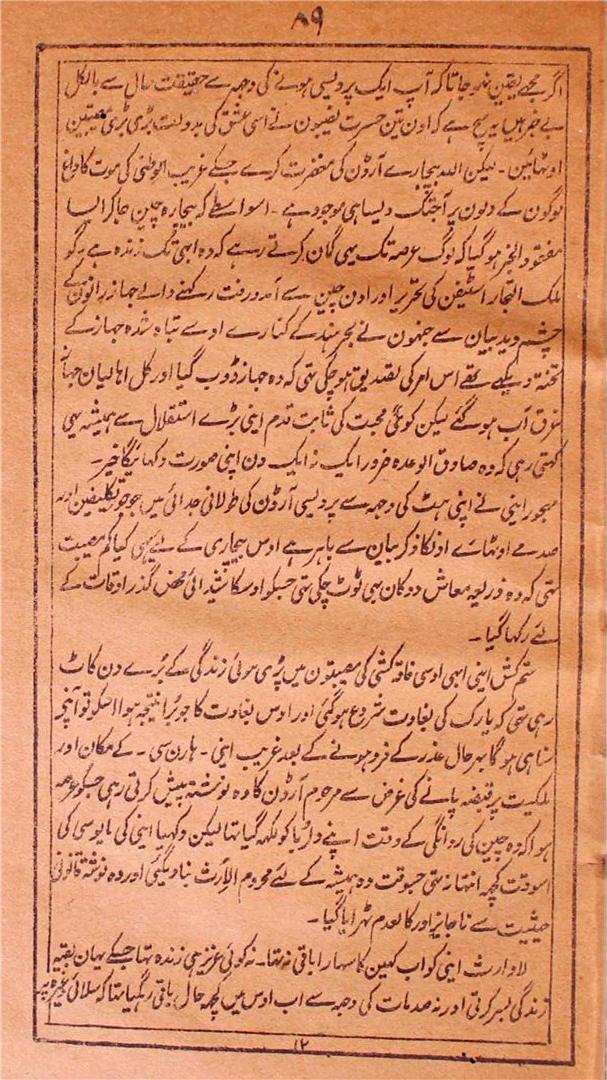 ۸۹
اگر مجھے یقین نہو جاتا کہ آپ ایک پردیسی ہونے کی وجہہ سے حقیقت حال سے بالکل
بے خبر ہین یہ سچ ہے کہ اون تین حسرت نصیبون نے اسی عشق کی بدولت بڑی بڑی مصیبتین
اوٹھائین۔ لیکن اللہ بیچارے آرڈن کی مغفرت کرے جسکے غریب الوطنی کی موت کا داغ
لوگون کے دلون پر آجتک ویسا ہی موجود ہے۔ اسواسطے کہ بیچارہ چین جا کر ایسا
مفقود الخبر ہو گیا کہ لوگ عرصہ تک یہی گمان کرتے رہے کہ وہ ابھی تک زندہ ہے۔ گو
ملک التجار اسٹیفن کی تحریر اور اون چین سے آمد ورفت رکھنے والے جہاز رانون کے
چشم دید بیان سے جنہون نے بحر ہند کے کنارے اوسے تباہ شدہ جہاز کے
تختہ دیکھے تھے اس امر کی تصدیق ہو چکی تھی کہ وہ جہاز ڈوب گیا اور کل اہالیان جہاز
غرق آب ہو گئے لیکن کوئی محبت کی ثابت قدم اینی بڑے استقلال سے ہمیشہ یہی
کہتی رہی کہ وہ صادق الوعدہ ضرور ایک نہ ایک دن اپنی صورت دکھائیگا خیر۔
مہجور اینی نے اپنی ہٹ کی وجہہ سے پردیسی آرڈن کی طولانی جدائی مین جو جو تکلیفین اور
صدمے اوٹھائے اونکا ذکر بیان سے باہر ہے اوس بیچاری کے لیے یہی کیا کم مصیبت
تھی کہ وہ ذریعہ معاش دوکان بھی ٹوٹ چکی تھی جسکو اوسکا شیدائی محض گذر اوقات کے
لئے رکھا گیا۔
ستم کش اینی ابھی اوسی فاقہ کشی کی مصیبتون مین پڑی ہوئی زندگی کے بُرے دن کاٹ
رہی تھی کہ یارک کی بغاوت شروع ہو گئی اور اوس بغاوت کا جو بُرا نتیجہ ہوا اسکو تو آپنے
سنا ہی ہو گا بہر حال غدر کے فرو ہونے کے بعد غریب اینی۔ ہارن سی۔ کے مکان اور
ملکیت پر قبضہ پانے کی غرض سے مرحوم آرڈن کا وہ نوشتہ پیش کرتی رہی جسکو عرصہ
ہوا کہ وہ چین کی روانگی کے وقت اپنے دلربا کو لکھہ گیا تھا لیکن دکھیا اینی کی مایوسی کی
اسوقت کچھ انتہا نہ تھی جسوقت وہ ہمیشہ کے لئے محروم الارث بنا دیگئی اور وہ نوشتہ قانونی
حیثیت سے ناجایز اور کالعدم ٹہرایا گیا۔
لاوارث اینی کو اب کہین کا سہارا باقی نہ تھا۔ نہ کوئی عزیز ہی زندہ تھا جسکے یہان بقیہ
زندگی بسر کرتی اور نہ صدمات کی وجہہ سے اب اوس مین کچھ حال باقی رہگیا تھا کہ سلائی وغیرہ پر
۱۲